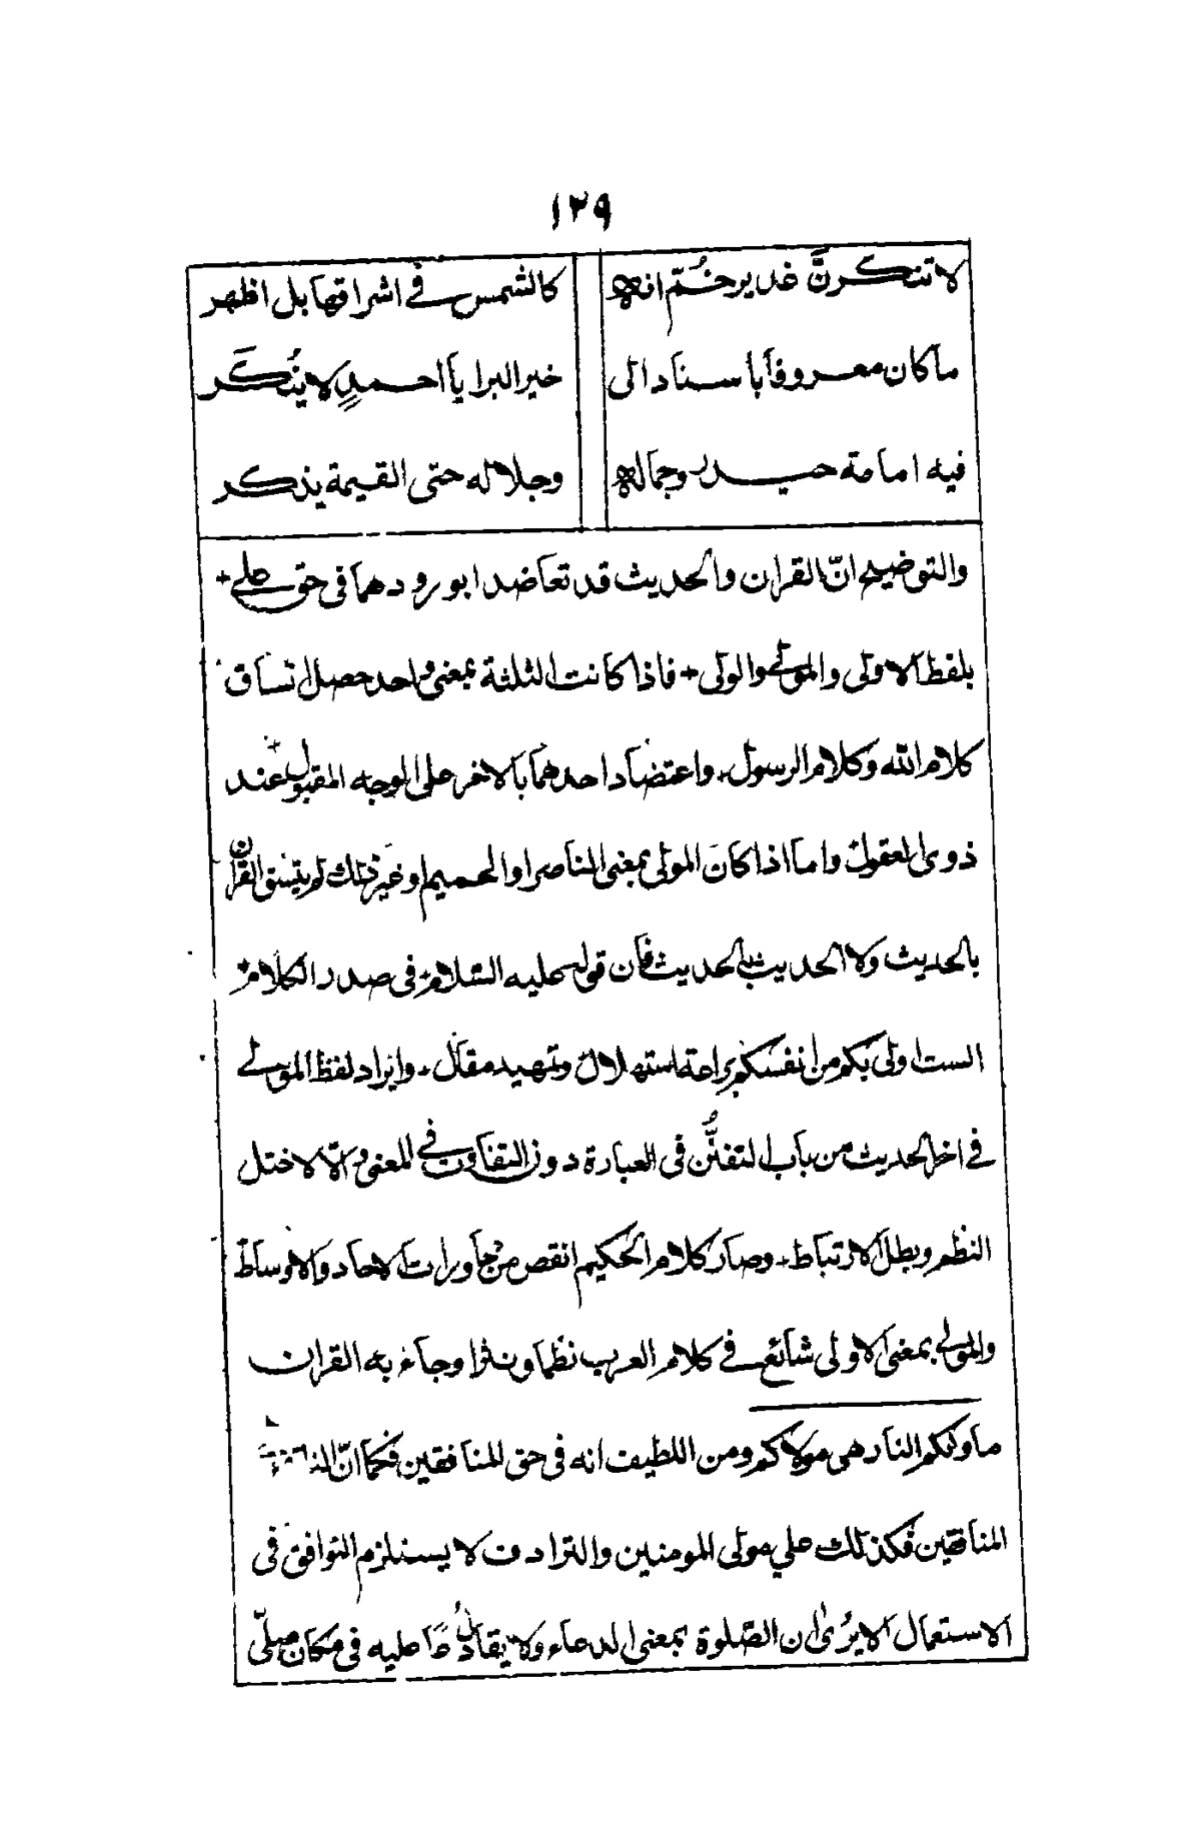 ١٢٩
لا تنكرنَّ غدير خُمّ انه كالشمس في اشراقها بل اظهر
ما كان معروفا باسناد الى خير البرايا احمدٍ لا يُنكَر
فيه امامة حيدر وجماله وجلاله حتى القيمة يذكر
والتوضيح انّ القران والحديث قد تعاضد ابورودهما في حق علي +
بلفظ الاولى والمولى والولى + فاذا كانت الثلثة بمعنى واحد حصل اتساق
كلام الله وكلام الرسول. واعتضاد احدهما بالاخر على الوجه المقبول عند
ذوى العقول واما اذا كان المولى بمعنى الناصر او الحميم او غير ذلك لم يتسق القران
بالحديث ولا الحديث بالحديث فان قوله عليه السّلام في صدر الكلام
الست اولى بكم من انفسكم براعة استهلال وتمهيد مقال. وايراد لفظ المولى
في اخر الحديث من باب التفنُّن في العبارة دون التفاوت في المعنى والّا لاختل
النظم وبطل الارتباط. وصار كلام الحكيم انقص من محاورات الاحاد والاوساط
والمولى بمعنى الاولى شائع في كلام العرب نظما ونثرا وجاء به القران
ماوٰكم النار هي مولاكم ومن اللطيف انه في حق المنافقين فكما انّ النار
المنافقين فكذلك علي مولى المومنين والترادف لا يستلزم التوافق في
الاستعمال الا يُرىٰ ان الصّلوة بمعنى الدعاء ولا يقال دعا عليه في مكان صلّى